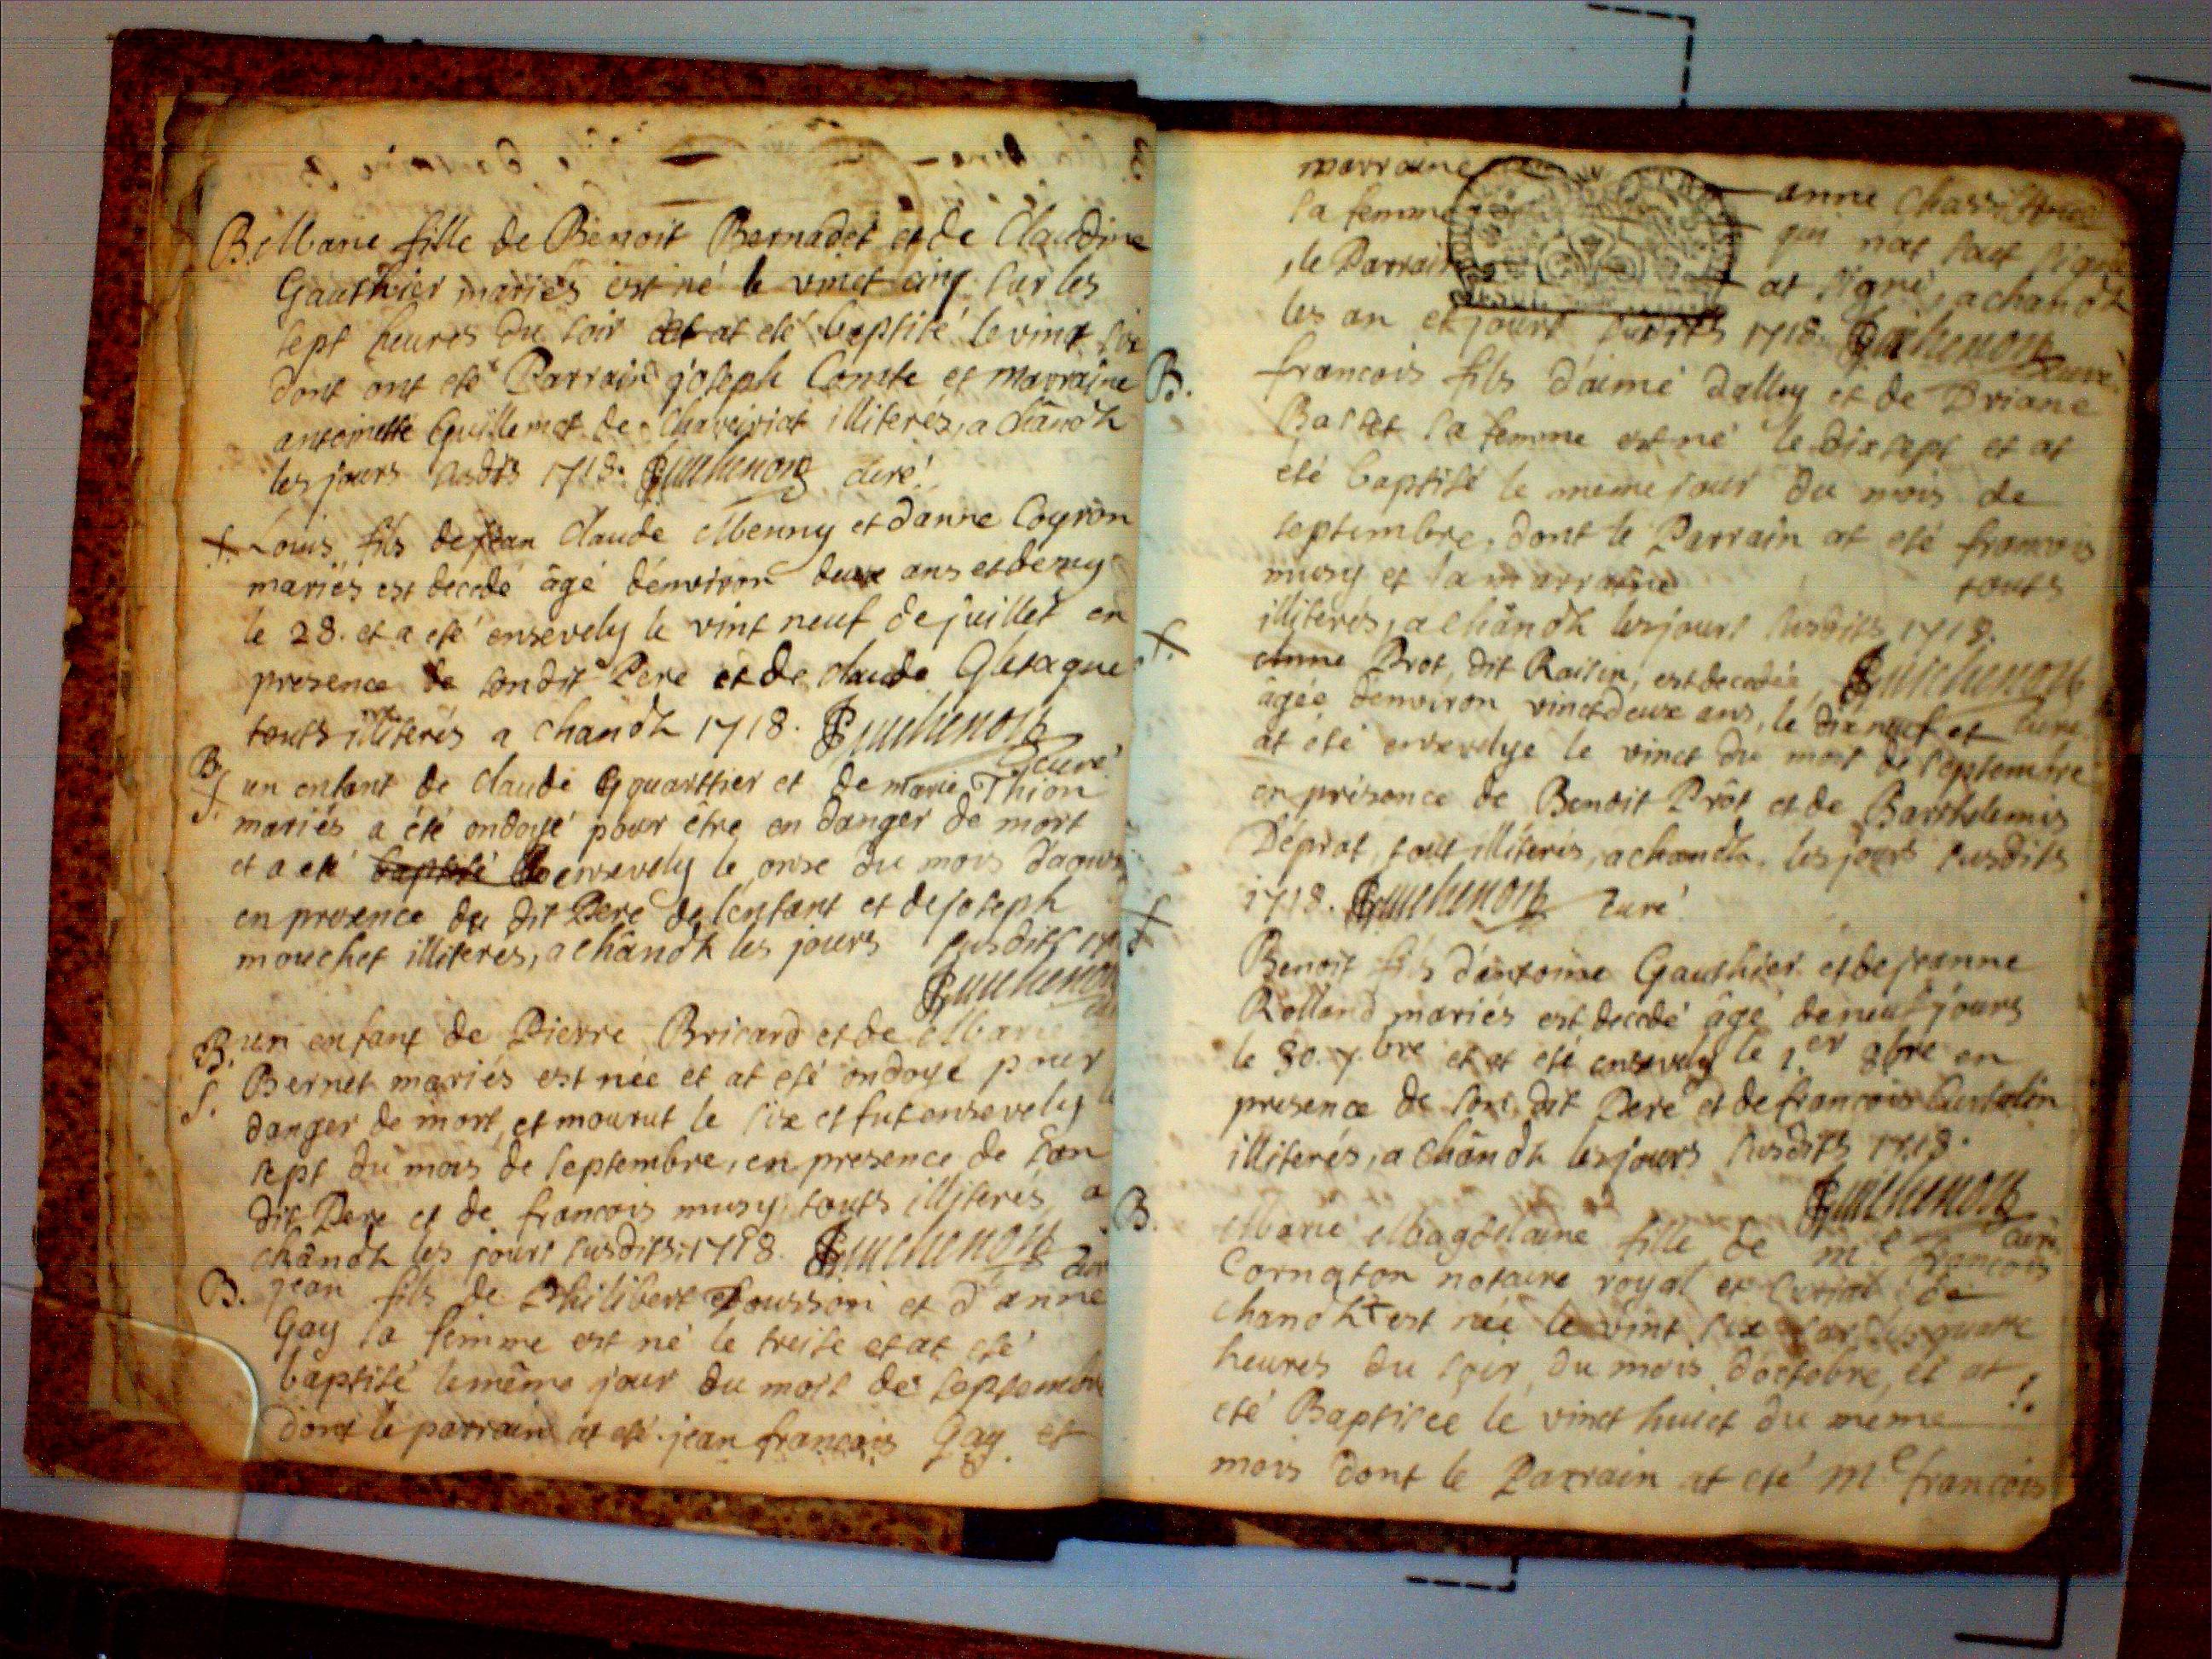 B. Marie fille de Benoit Bernadet et de Claudine
Gauthier mariés est né le vinct cinq sur les
sept heures du soir at eté baptisé le vinct six
dont ont eté Parrain joseph Comte et marraine
antoinette Guillemot de Chaveiriat illiterés, a chândh
les jours susdits 1718. curé
f. Louis fils de jean Claude Menny et danne Coyron
mariés est decedé âgé d'environ deux ans et demy
le 28. et a eté ensevely le vint neuf de juillet en
presence de sondit Pere et de claude
touts illiterés a chandh 1718.
curé
B.
f. un enfant de claude quarttier et de marie Thion
mariés a été ondoyé pour être en danger de mort
et a eté baptisé ensevely le onse du mois
en presence du dit Pere de l'enfant et de joseph
mouchet illiteres, a chândh les jours susdits
B. un enfant de Pierre Bricard et de Marie
f. Bernet mariés est née et at eté ondoyé pour
danger de mort, et mourut le six et fut ensevely le
sept du mois de septembre, en presence de son
dit Pere et de francois musy touts illiterés a
chândh les jours susdits 1718.
B. jean fils de Philibert et d'anne
Gay sa femme est né le treise et at eté
baptisé le même jour du mois de septembre
dont le parrain at eté jean francois Gay et
marraine anne
sa femme qui n'at
le Parrain at signé, a chandh
les an et jours susdits 1718. curé
B. francois fils d'aimé dalluy et de Driane
Bastet sa femme est né le dixsept et at
été baptisé le meme jour du mois de
septembre, dont le Parrain at eté francois
musy et la marraine touts
illiterés, a chândh les jours susdits 1718.
f. Anne Prot, dit Raisin, est decedée,
âgée d'environ vinctdeux ans, le dix neuf et curé
at eté ensevelye le vinct du mois de septembre
en présence de Benoit Prôt et de Barthelemis
Déprat, tout illiterés, a chandh. les jours susdits
1718. curé
f. Benoit fils d'antoine Gauthier et de jeanne
Rolland mariés est decedé âgé de neuf jours
le 30. 7.bre et at eté ensevely le 1.er 8bre en
presence de son dit Pere et de francois
illiterés, a chândh les jours susdits 1718.
B. Marie Magdelaine fille de m.e francois curé
Cornaton notaire royal et curial de
chandh est née le vint six sur les quatre
heures du soir, du mois d'octobre, et at
eté Baptisee le vinct huict du meme
mois dont le Parrain at eté m.e francois